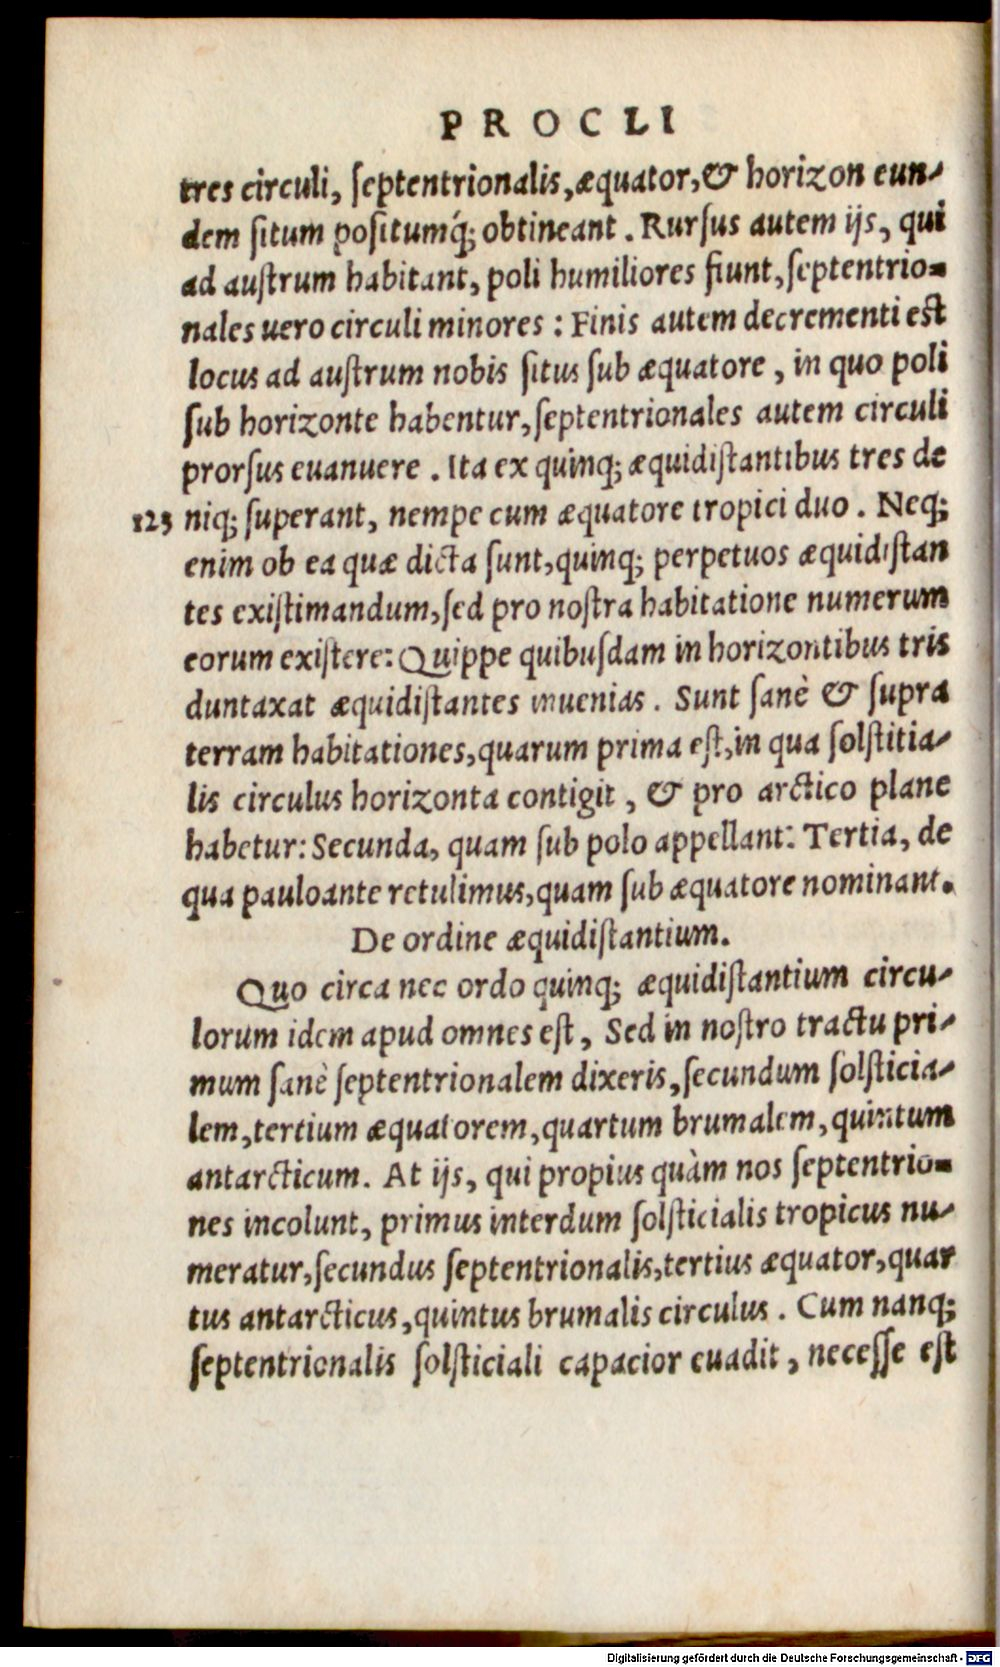 PROCLI
tres circuli, ſeptentrionalis, æquator, & horizon eun-
dem ſitum poſitumq́; obtineant. Rurſus autem ijs, qui
ad auſtrum habitant, poli humiliores fiunt, ſeptentrio-
nales uero circuli minores: Finis autem decrementi eſt
locus ad auſtrum nobis ſitus ſub æquatore, in quo poli
ſub horizonte habentur, ſeptentrionales autem circuli
prorſus euanuere. Ita ex quinq; æquidiſtantibus tres de
123 niq; ſuperant, nempe cum æquatore tropici duo. Neq;
enim ob ea quæ dicta ſunt, quinq; perpetuos æquidiſtan
tes exiſtimandum, ſed pro noſtra habitatione numerum
eorum exiſtere: Quippe quibuſdam in horizontibus tris
duntaxat æquidiſtantes inuenias. Sunt ſanè & ſupra
terram habitationes, quarum prima eſt, in qua ſolſtitia-
lis circulus horizonta contigit, & pro arctico plane
habetur: Secunda, quam ſub polo appellant: Tertia, de
qua pauloante retulimus, quam ſub æquatore nominant.
De ordine æquidiſtantium.
Quo circa nec ordo quinq; æquidiſtantium circu-
lorum idem apud omnes eſt, Sed in noſtro tractu pri-
mum ſanè ſeptentrionalem dixeris, ſecundum ſolſticia-
lem, tertium æquatorem, quartum brumalem, quintum
antarcticum. At ijs, qui propius quàm nos ſeptentrio-
nes incolunt, primus interdum ſolſticialis tropicus nu-
meratur, ſecundus ſeptentrionalis, tertius æquator, quar
tus antarcticus, quintus brumalis circulus. Cum nanq;
ſeptentrionalis ſolſticiali capacior euadit, neceſſe eſt
Digitalisierung gefördert durch die Deutsche Forschungsgemeinschaft - DFG